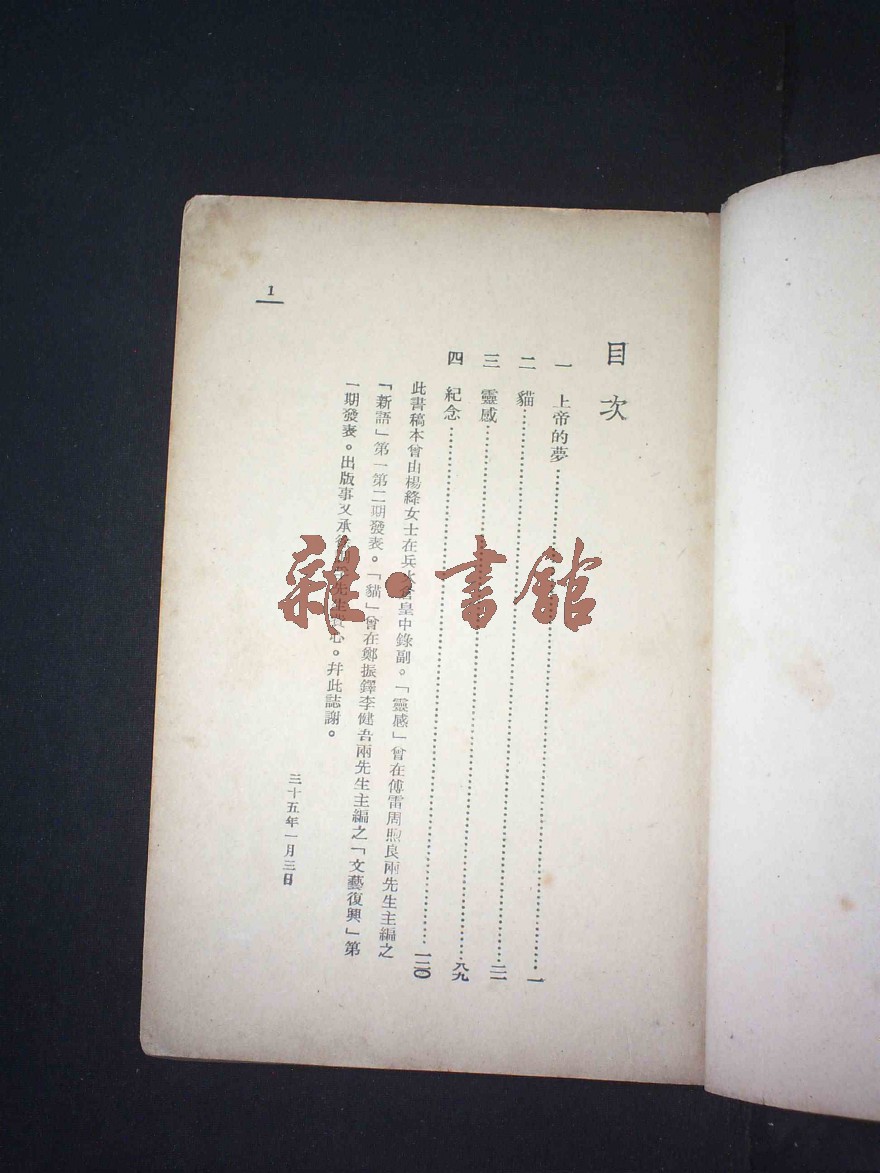 目次
一 上帝的夢……………………一
二 貓……………………二一
三 靈感……………………八九
四 紀念……………………一二〇
此書稿本曾由楊絳女士在兵火倉皇中錄副。「靈感」曾在傅雷周煦良兩先生主編之
「新語」第一第二期發表。「貓」曾在鄭振鐸李健吾兩先生主編之「文藝復興」第
一期發表。出版事又承先生費心。幷此誌謝。
三十五年一月三日
1
雜·書館